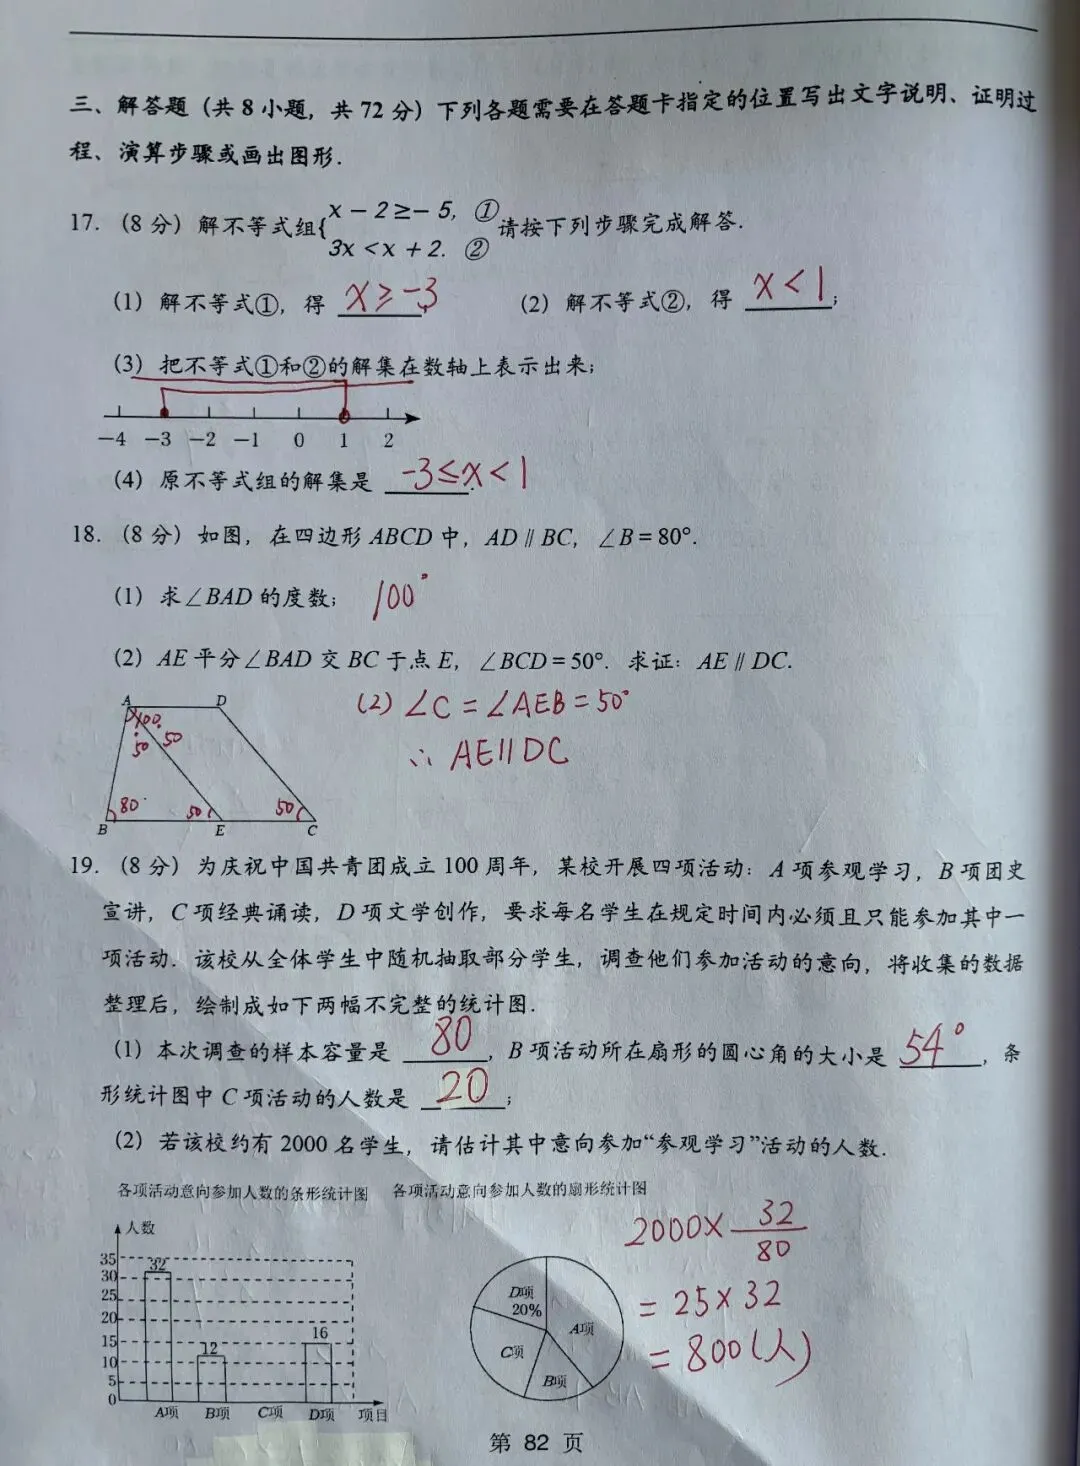 三、解答题（共 8 小题，共 72 分）下列各题需要在答题卡指定的位置写出文字说明、证明过
程、演算步骤或画出图形.
17.（8 分）解不等式组{x − 2 ≥ − 5, ① 3x < x + 2. ② 请按下列步骤完成解答.
(1) 解不等式①，得 x ≥ -3 (2) 解不等式②，得 x < 1;
(3) 把不等式①和②的解集在数轴上表示出来;
−4 −3 −2 −1 0 1 2
(4) 原不等式组的解集是 -3 ≤ x < 1.
18.（8 分）如图，在四边形 ABCD 中，AD ∥ BC，∠B = 80°.
(1) 求∠BAD 的度数; 100°
(2) AE 平分∠BAD 交 BC 于点 E，∠BCD = 50°. 求证：AE ∥ DC.
(2) ∠C = ∠AEB = 50°
∴ AE∥DC
A D
100
50 50
80 50 50
B E C
19.（8 分）为庆祝中国共青团成立 100 周年，某校开展四项活动：A 项参观学习，B 项团史
宣讲，C 项经典诵读，D 项文学创作，要求每名学生在规定时间内必须且只能参加其中一
项活动. 该校从全体学生中随机抽取部分学生，调查他们参加活动的意向，将收集的数据
整理后，绘制成如下两幅不完整的统计图.
(1) 本次调查的样本容量是 80，B 项活动所在扇形的圆心角的大小是 54°，条
形统计图中 C 项活动的人数是 20;
(2) 若该校约有 2000 名学生，请估计其中意向参加“参观学习”活动的人数.
各项活动意向参加人数的条形统计图 各项活动意向参加人数的扇形统计图
2000× 32/80
= 25×32
= 800(人)
人数
35
30
25
20
15
10
5
0
32
12
16
A项 B项 C项 D项 项目
D项
20%
A项
C项
B项
第 82 页